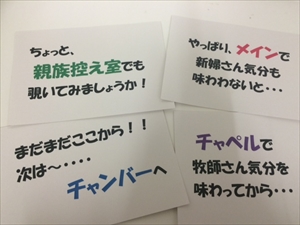 ちょっと、
親族控え室でも
覗いてみましょうか！
やっぱり、メインで
新婦さん気分も
味わわないと・・・
まだまだここから！！
次は～・・・・
チャンバーへ
チャペルで
牧師さん気分を
味わってから・・・